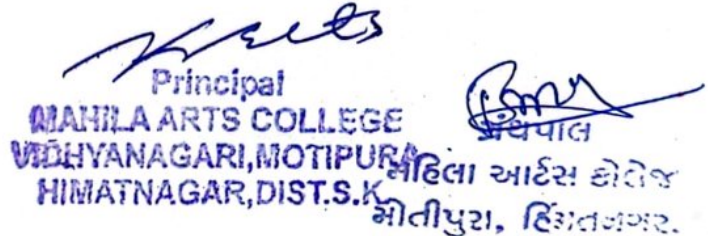 Principal
MAHILA ARTS COLLEGE
VIDHYANAGARI, MOTIPURA
HIMATNAGAR, DIST. S.K.
ગ્રંથપાલ
મહિલા આર્ટસ કોલેજ
મોતીપુરા, હિંમતનગર.